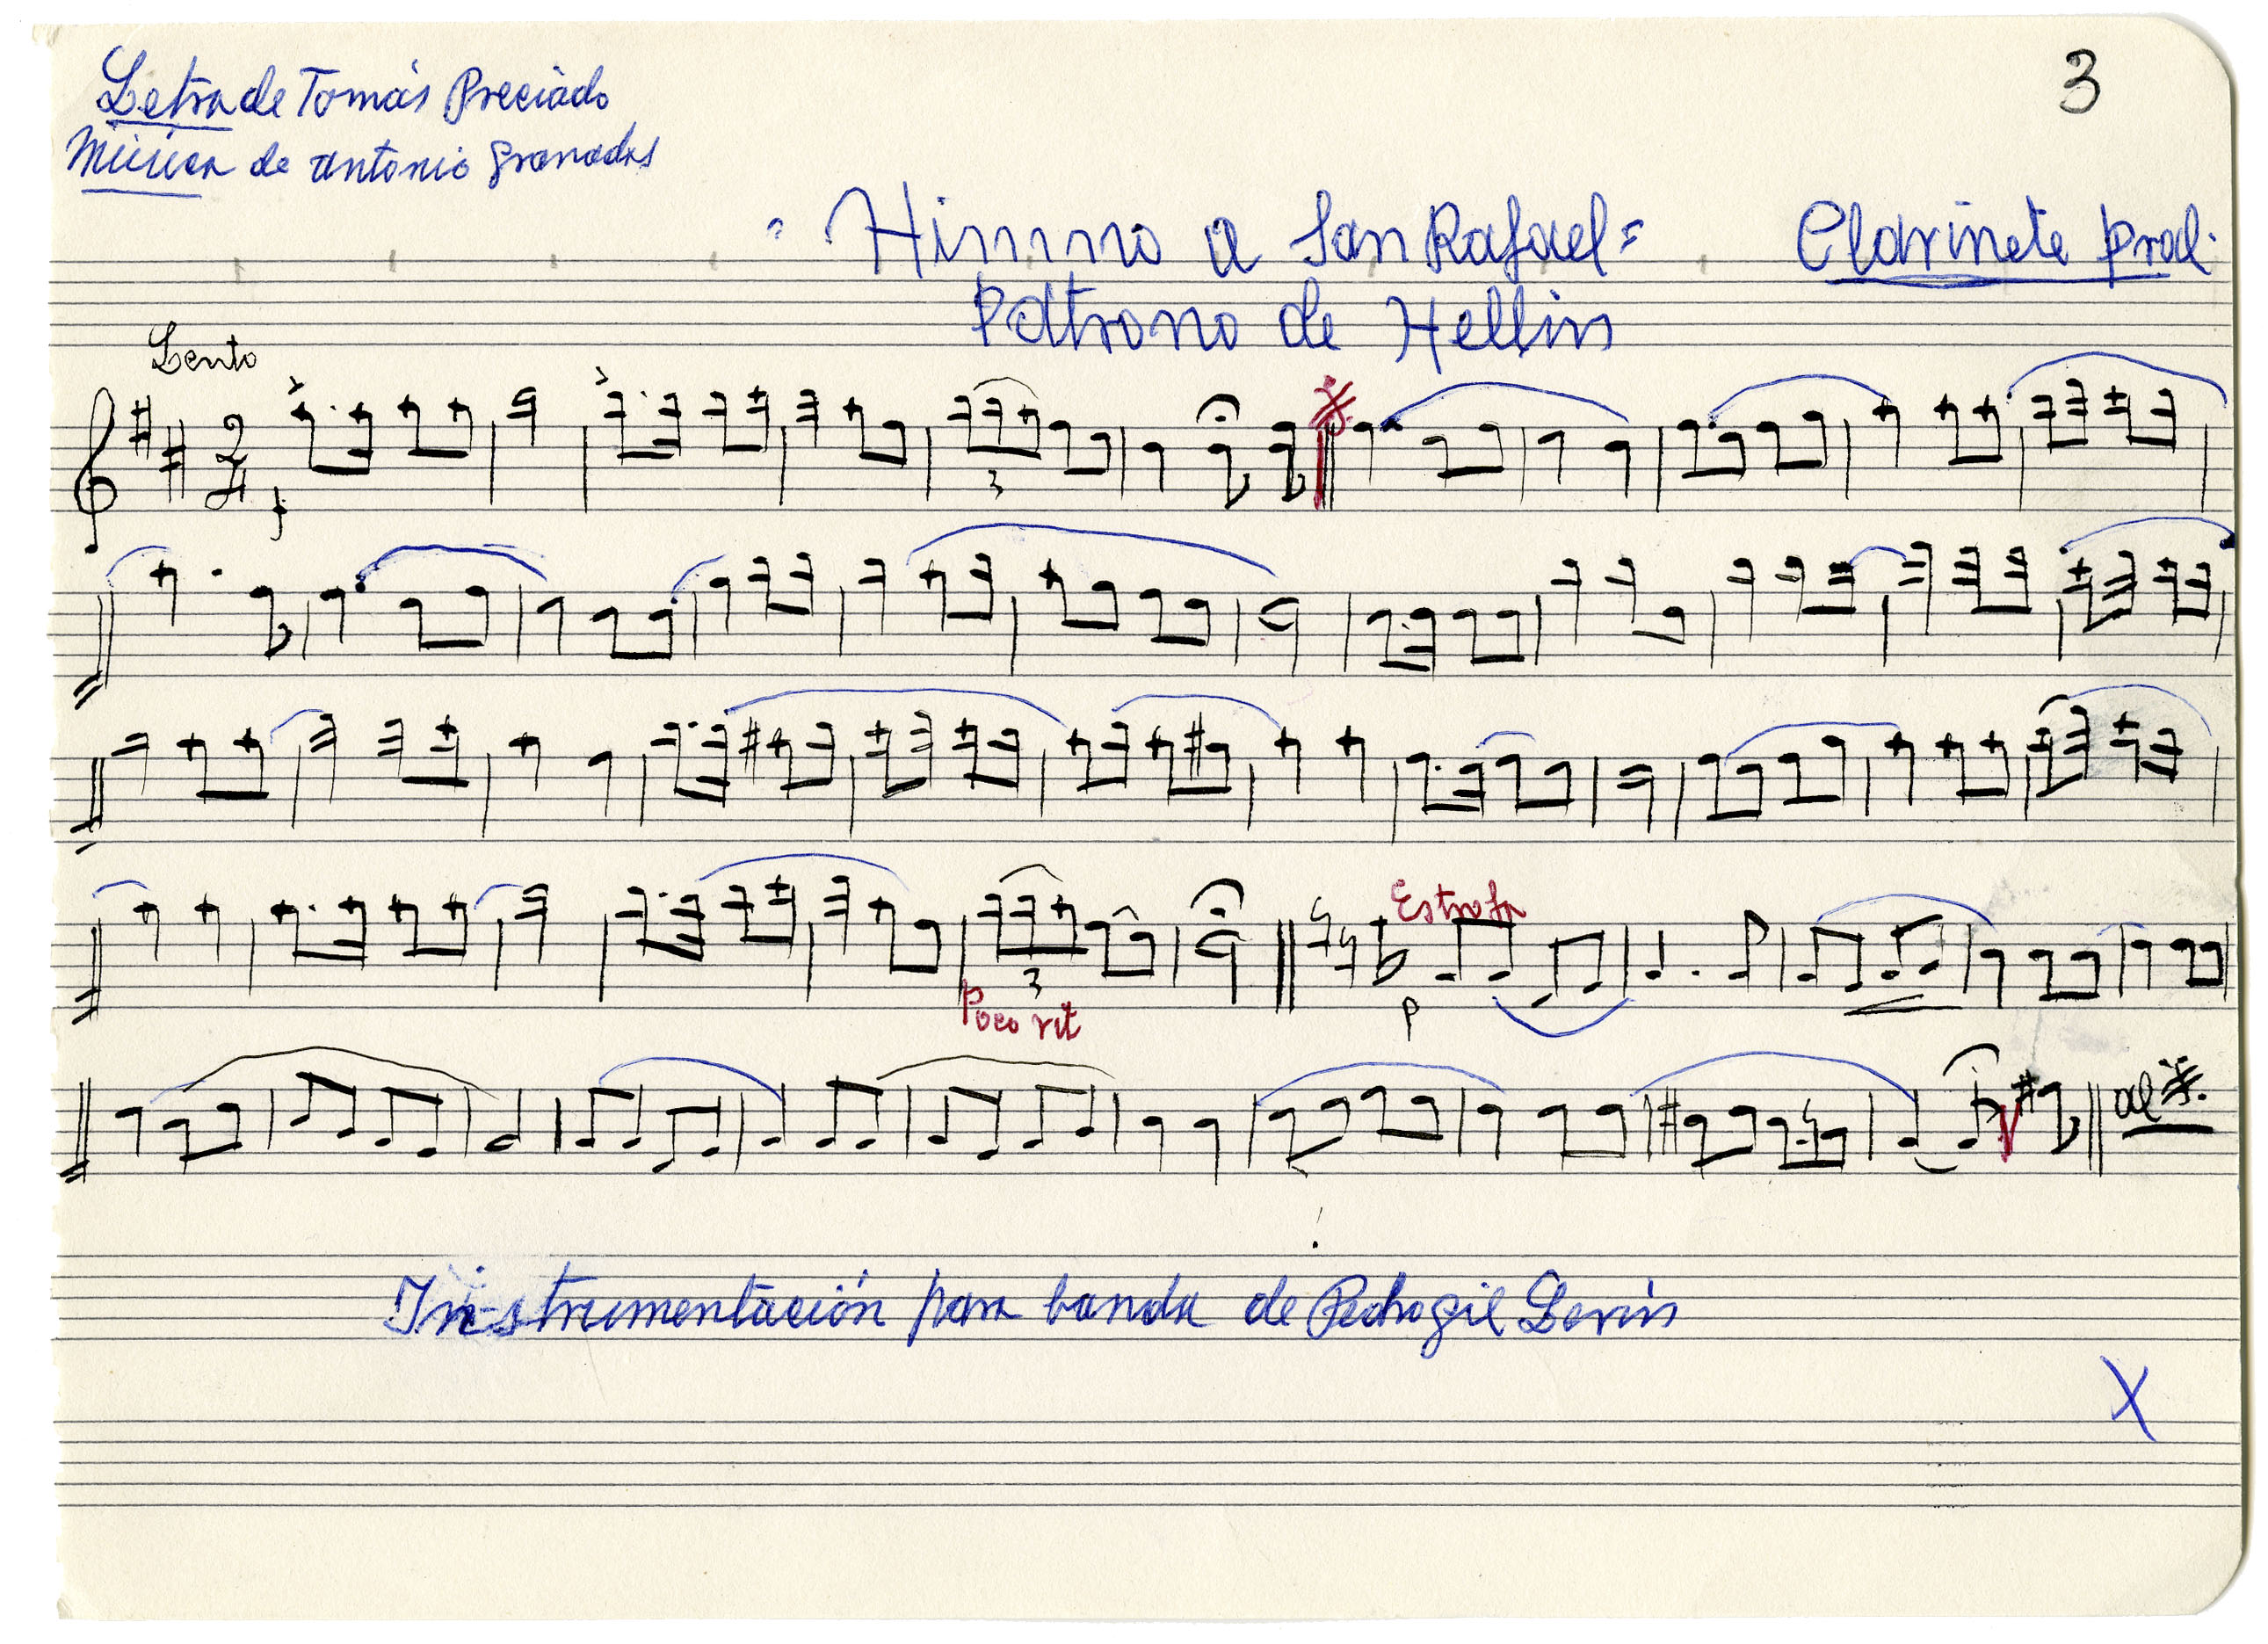 3
Letra de Tomás Preciado
Música de Antonio Granados
"Himno a San Rafael" Clarinete pral.
Patrono de Hellín
Lento
2/4
f
3
Estrofa
3
p
Poco rit
al
Instrumentación para banda de Pedro Gil Lerín
X